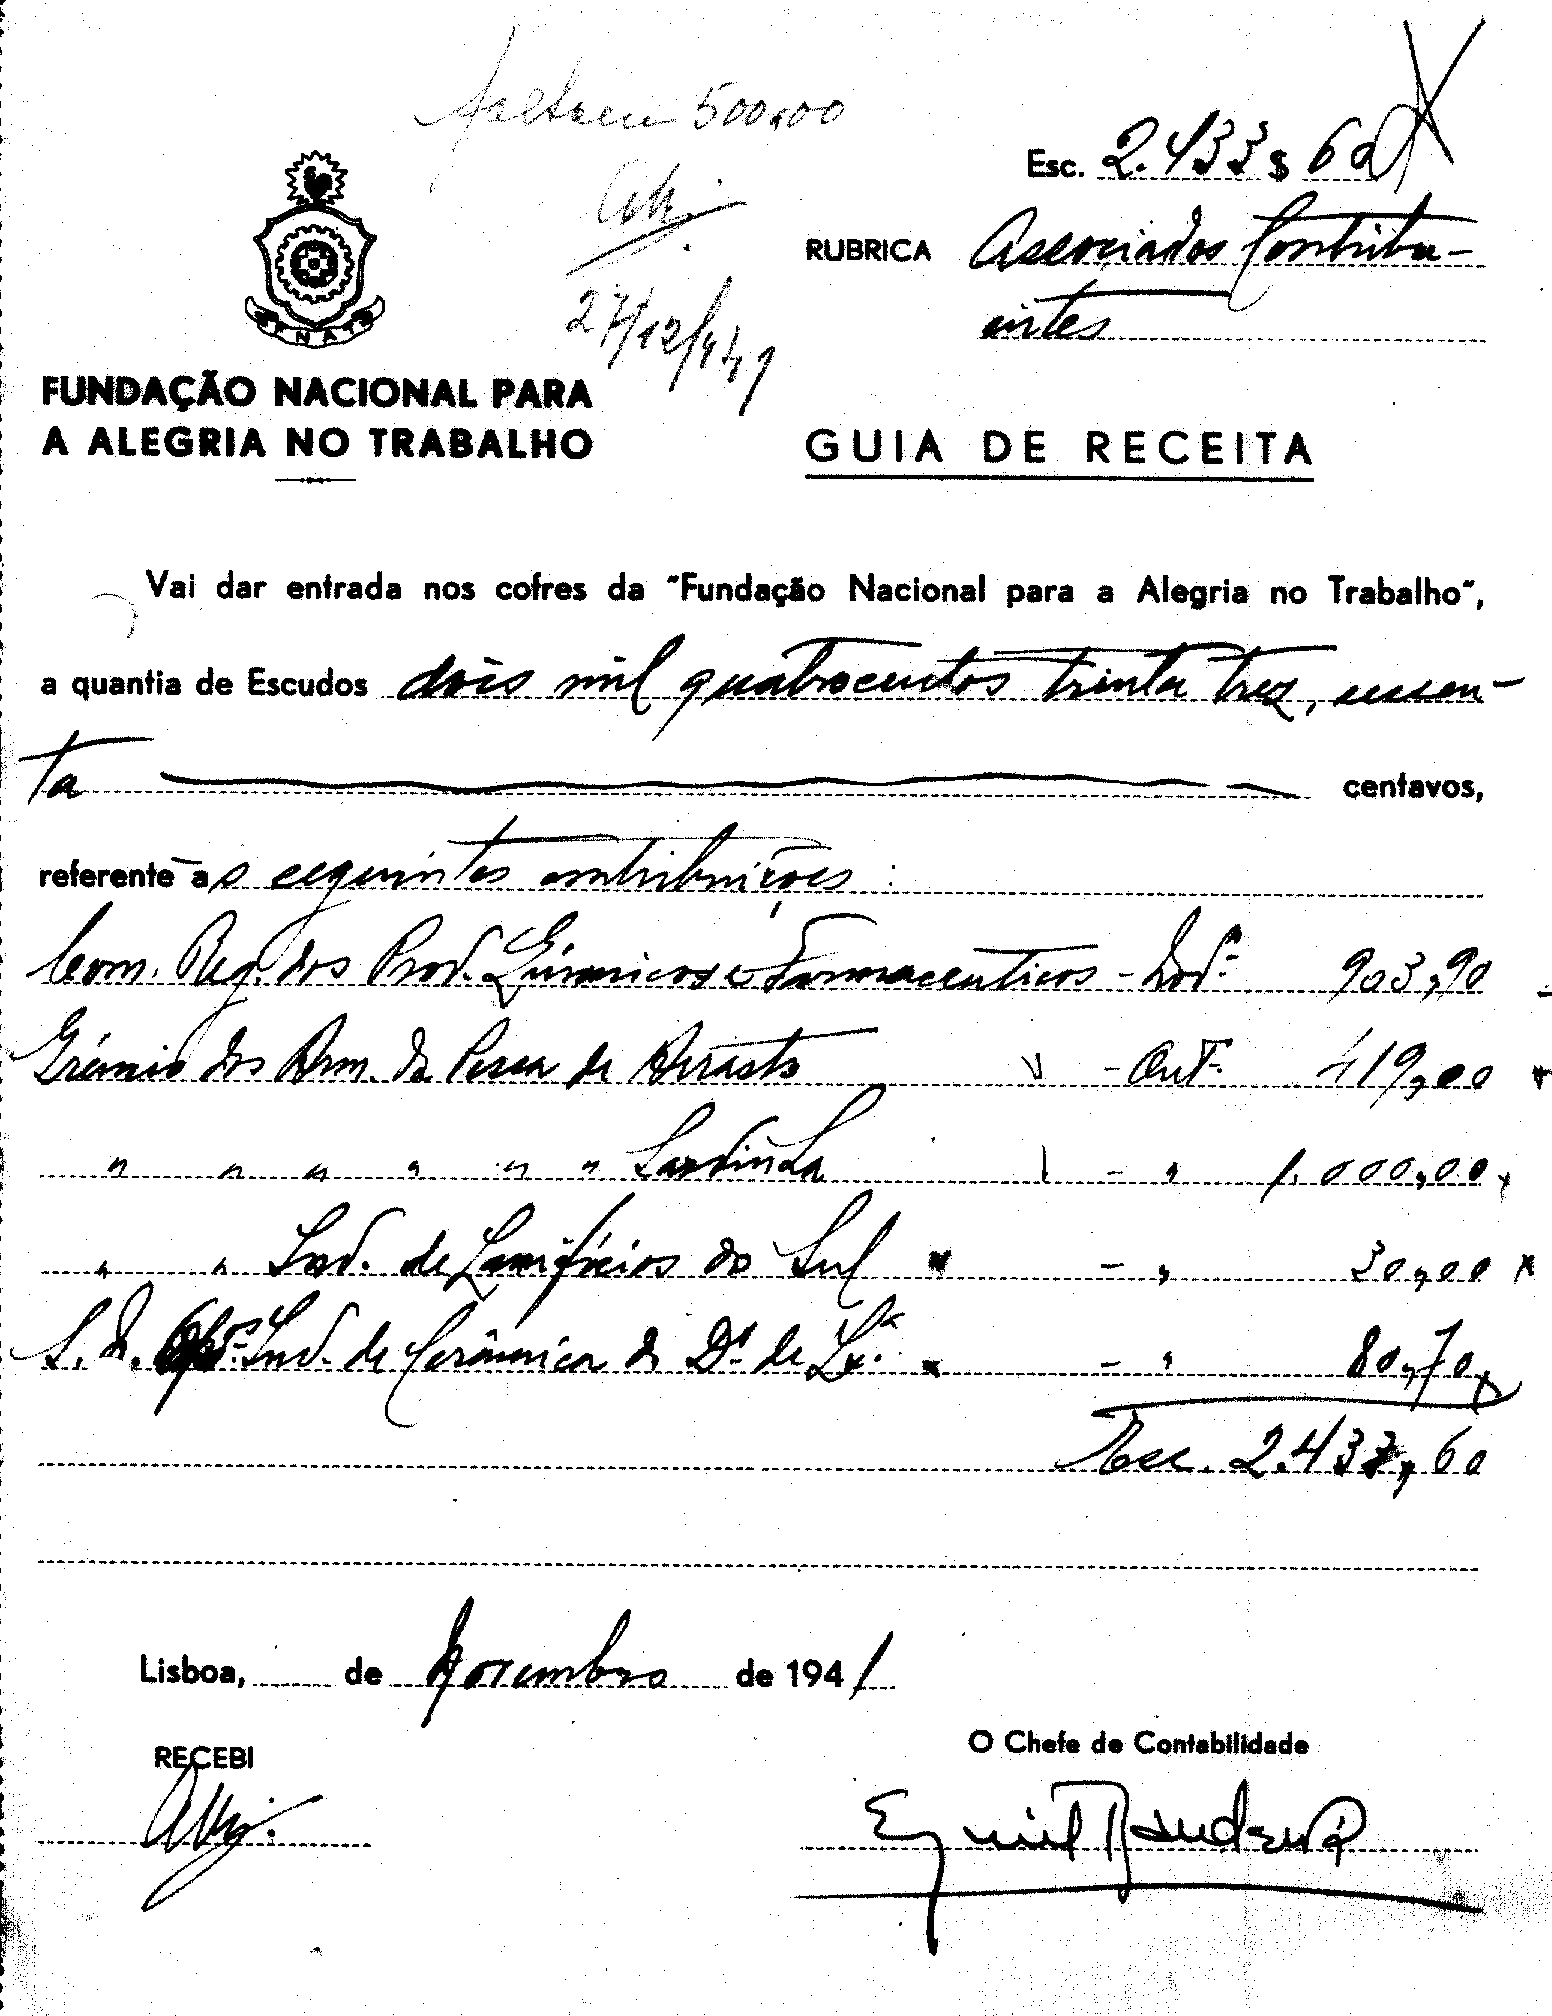 Faltam 500,00
27/12/941
Esc. 2.433 $ 60
RUBRICA Associados Contribu-
intes
FNAT
FUNDAÇÃO NACIONAL PARA
A ALEGRIA NO TRABALHO
GUIA DE RECEITA
Vai dar entrada nos cofres da "Fundação Nacional para a Alegria no Trabalho",
a quantia de Escudos dois mil quatrocentos trinta trez, sessen-
ta centavos,
referente as seguintes contribuições:
Com. Reg. dos Prod. Químicos e Farmaceuticos - Nov.º 903,90
Grémio dos Arm. da Pesca de Arrasto - Out. 419,00
" " " " " " Sardinha - " 1.000,00
" " Ind. de Lanifícios do Sul - " 30,00
S. N. Op.os Ind. de Cerâmica do D.º de Lx.ª - " 80,70
Esc. 2.433,60
Lisboa, de Novembro de 1941
RECEBI
O Chefe de Contabilidade